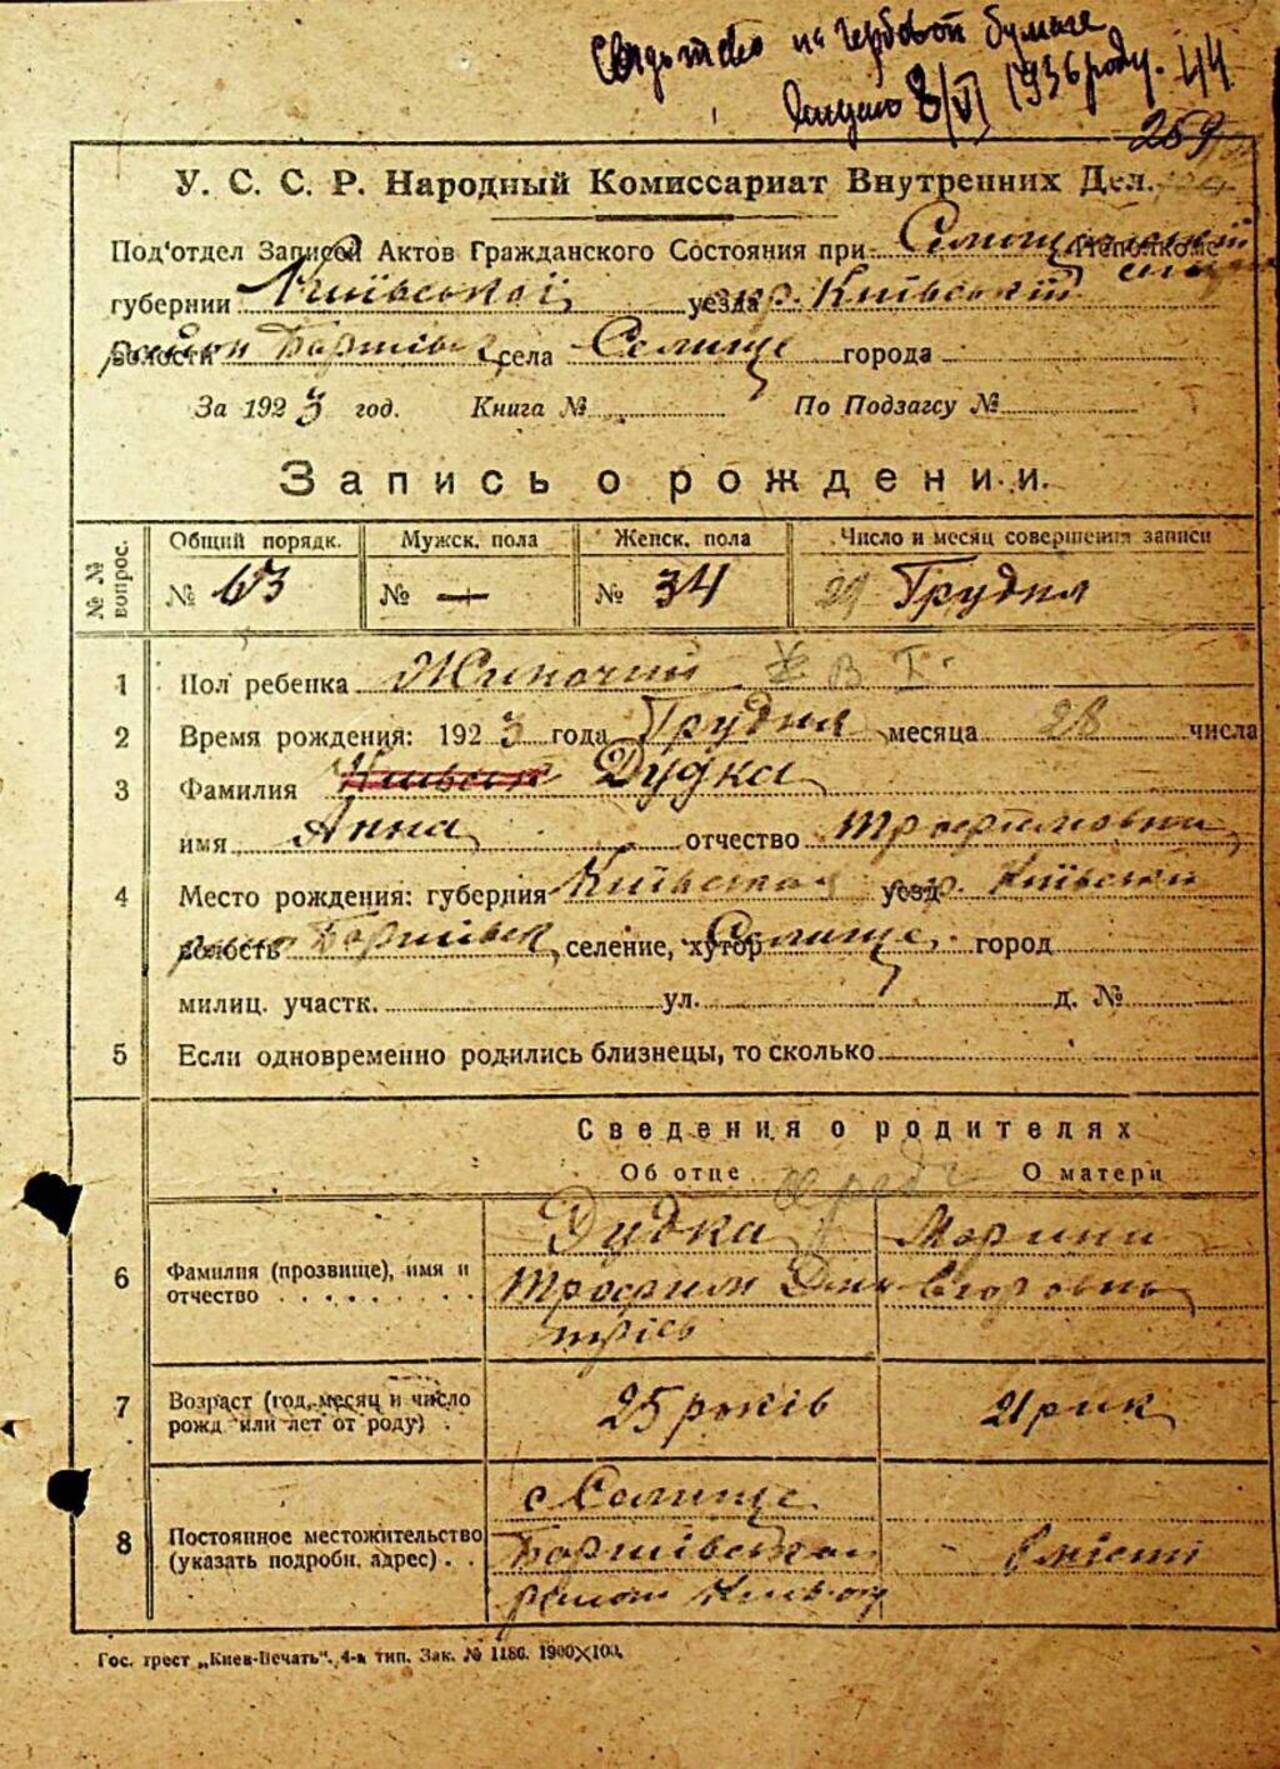 на гербовой бумаге
8/VI 1936 року. 44
259
У. С. С. Р. Народный Комиссариат Внутренних Дел.
Под'отдел Записей Актов Гражданского Состояния при Исполкоме
губернии Київської уезда окр. Київський
волости район села Селище города
За 1923 год. Книга № По Подзагсу №
Запись о рождении.
№ № вопрос.
Общий порядк. Мужск. пола Женск. пола Число и месяц совершения записи
№ 63 № — № 34 29 Грудня
1 Пол ребенка Жиночий
2 Время рождения: 1923 года Грудня месяца 28 числа
3 Фамилия Дудка
имя Анна отчество Трофимовна
4 Место рождения: губерния Київская уезд Київский
волость селение, хутор Селище город
милиц. участк. ул. д. №
5 Если одновременно родились близнецы, то сколько
Сведения о родителях
Об отце О матери
6 Фамилия (прозвище), имя и отчество
Дудка
Трофим Дми
трієв
Марини
Егоровны
7 Возраст (год, месяц и число рожд или лет от роду)
25 років
21 рик
8 Постоянное местожительство (указать подробн. адрес)
с Селище
Гос. трест „Киев-Печать“. 4-я тип. Зак. № 1186. 1900×100.